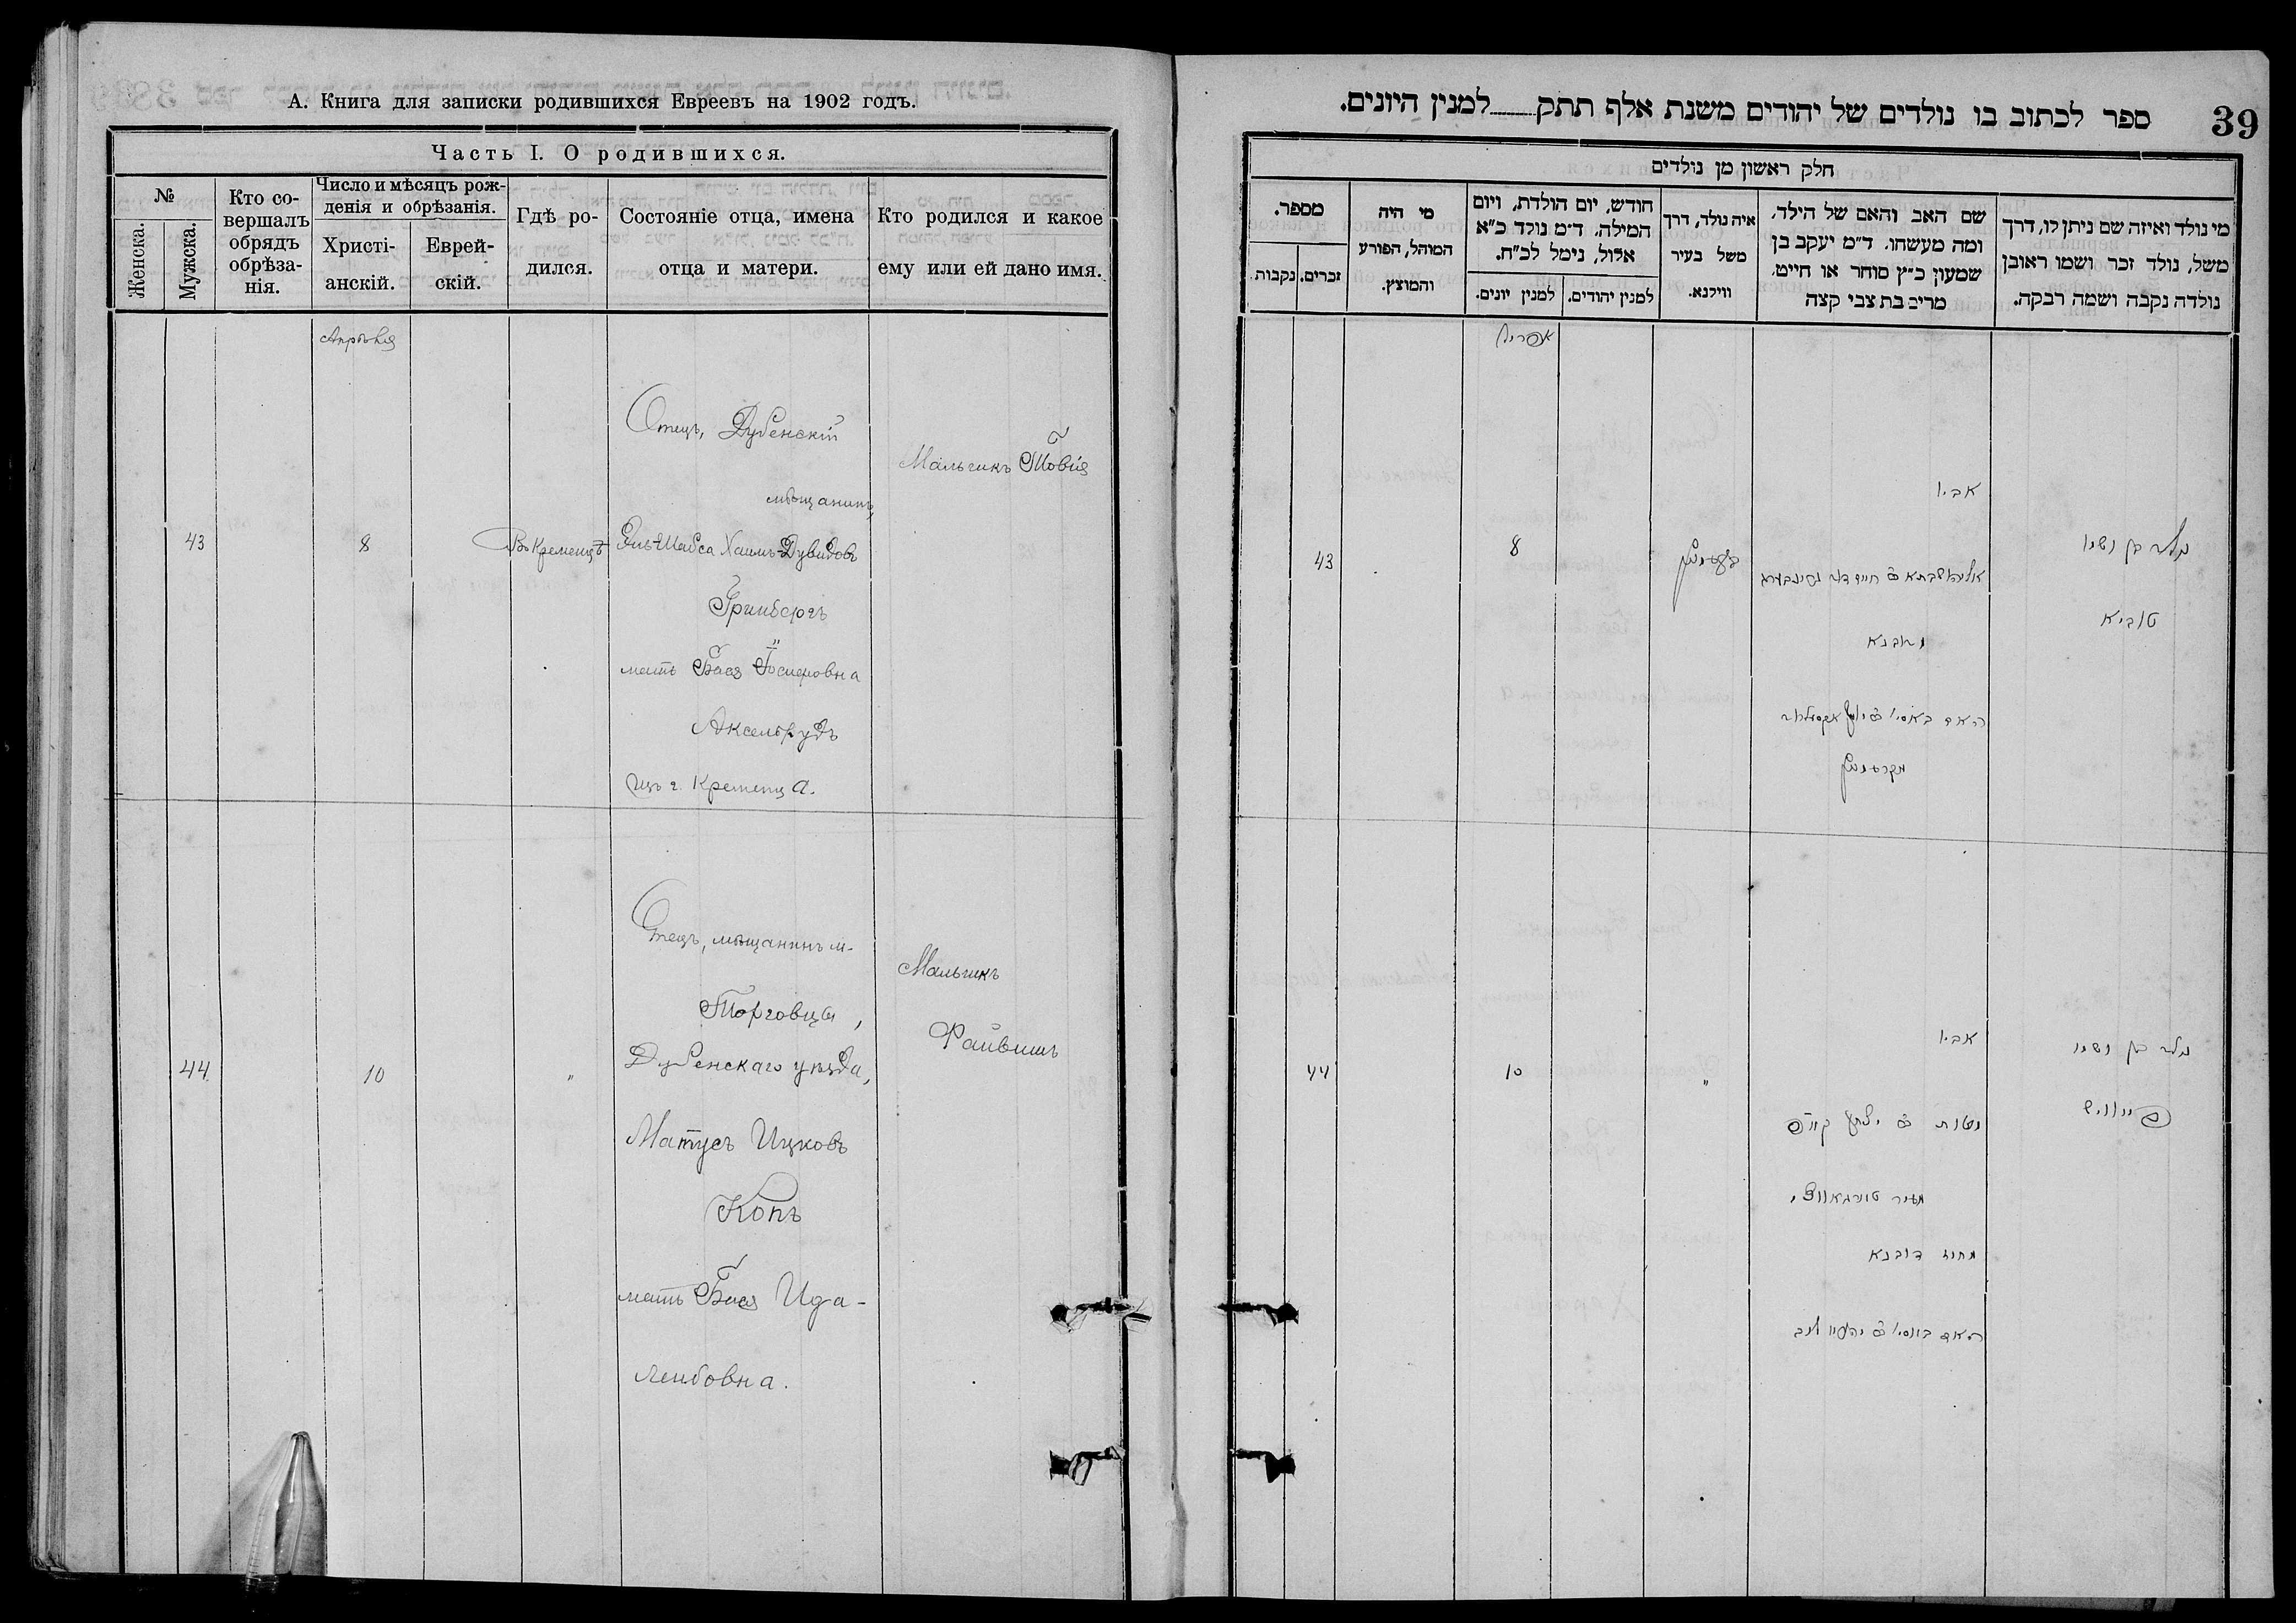 А. Книга для записки родившихся Евреевъ на 1902 годъ.
Часть I. О родившихся.
№
Женска.
Мужска.
Кто со-
вершалъ
обрядъ
обрѣза-
нія.
Число и мѣсяцъ рож-
денія и обрѣзанія.
Христі-
анскій.
Еврей-
скій.
Гдѣ ро-
дился.
Состояніе отца, имена
отца и матери.
Кто родился и какое
ему или ей дано имя.
Апрѣля
43
8
Въ Кременцѣ
Отецъ, Дубенскій
мѣщанинъ,
Эль-Шабса Хаимъ-Дувидовъ
Гринберъ
мать Бася
Аксельрудъ
изъ г. Кременца.
Мальчикъ Товія
44
10
"
Отецъ, мѣщанинъ м.
Торговцы,
Дубенскаго уѣзда,
Матусъ Ицковъ
Копъ
мать Бася Ида-
лейбовна.
Мальчикъ
Файвишъ
39
ספר לכתוב בו נולדים של יהודים משנת אלף תתק למנין היונים.
חלק ראשון מן נולדים
מי נולד ואיזה שם ניתן לו, דרך
משל, נולד זכר ושמו ראובן
נולדה נקבה ושמה רבקה.
שם האב והאם של הילד,
ומה מעשהו. ד״מ יעקב בן
שמעון כ״ץ סוחר או חייט.
מרים בת צבי קצה
איה נולד, דרך
משל בעיר
ווילנא.
חודש, יום הולדת, ויום
המילה, ד״מ נולד כ״א
אלול, נימל לכ״ח.
למנין יהודים.
למנין יונים.
מי היה
המוהל, הפורע
והמוצץ.
מספר.
זכרים.
נקבות.
אפריל
נולד בן ושמו
טוביא
אביו
מדובנא
8
43
נולד בן ושמו
פייוויש
אביו
מטות ב״ר יצחק קופ
מעיר טורגאוויצי
מחוז דובנא
"
10
44